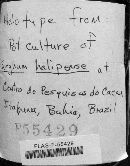 Holotype from
Pot Culture of
Sorghum halipense at
Centro de Pesquicas do Cacau,
Itabuna, Bahia, Brazil
P55429
FLAS-F-55429